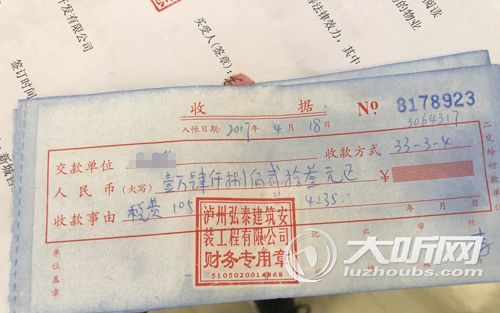 阅读
法律效力，其中
的物业
开发有限公司
买受人(签章):
签订时间
收据
No 8178923
入账日期: 2017年4月18日
3064317
交款单位
收款方式 33-3-4
人民币(大写) 壹万肆仟捌佰贰拾叁元
¥
收款事由 税费 105
4235
泸州弘泰建筑安
装工程有限公司
财务专用章
5105020014868
单位盖章
大听网
luzhoubs.com